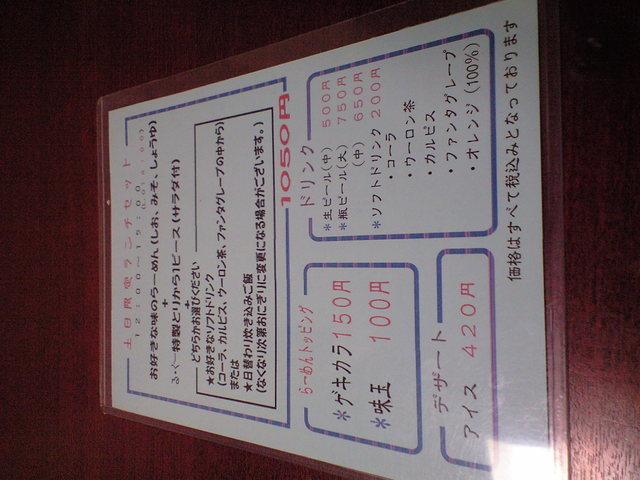 土日限定ランチセット
12:00～15:00
お好きな味のらーめん(しお、みそ、しょうゆ)
+
特製とりから1ピース(サラダ付)
+
どちらかお選びください
★お好きなソフトドリンク
(コーラ、カルピス、ウーロン茶、ファンタグレープの中から)
または
★日替わり炊き込みご飯
(なくなり次第おにぎりに変更になる場合がございます。)
1050円
らーめんトッピング
*ゲキカラ150円
*味玉 100円
ドリンク
*生ビール(中) 500円
*瓶ビール(大) 750円
(中) 650円
*ソフトドリンク 200円
・コーラ
・ウーロン茶
・カルピス
・ファンタグレープ
・オレンジ(100%)
デザート
アイス 420円
価格はすべて税込みとなっております